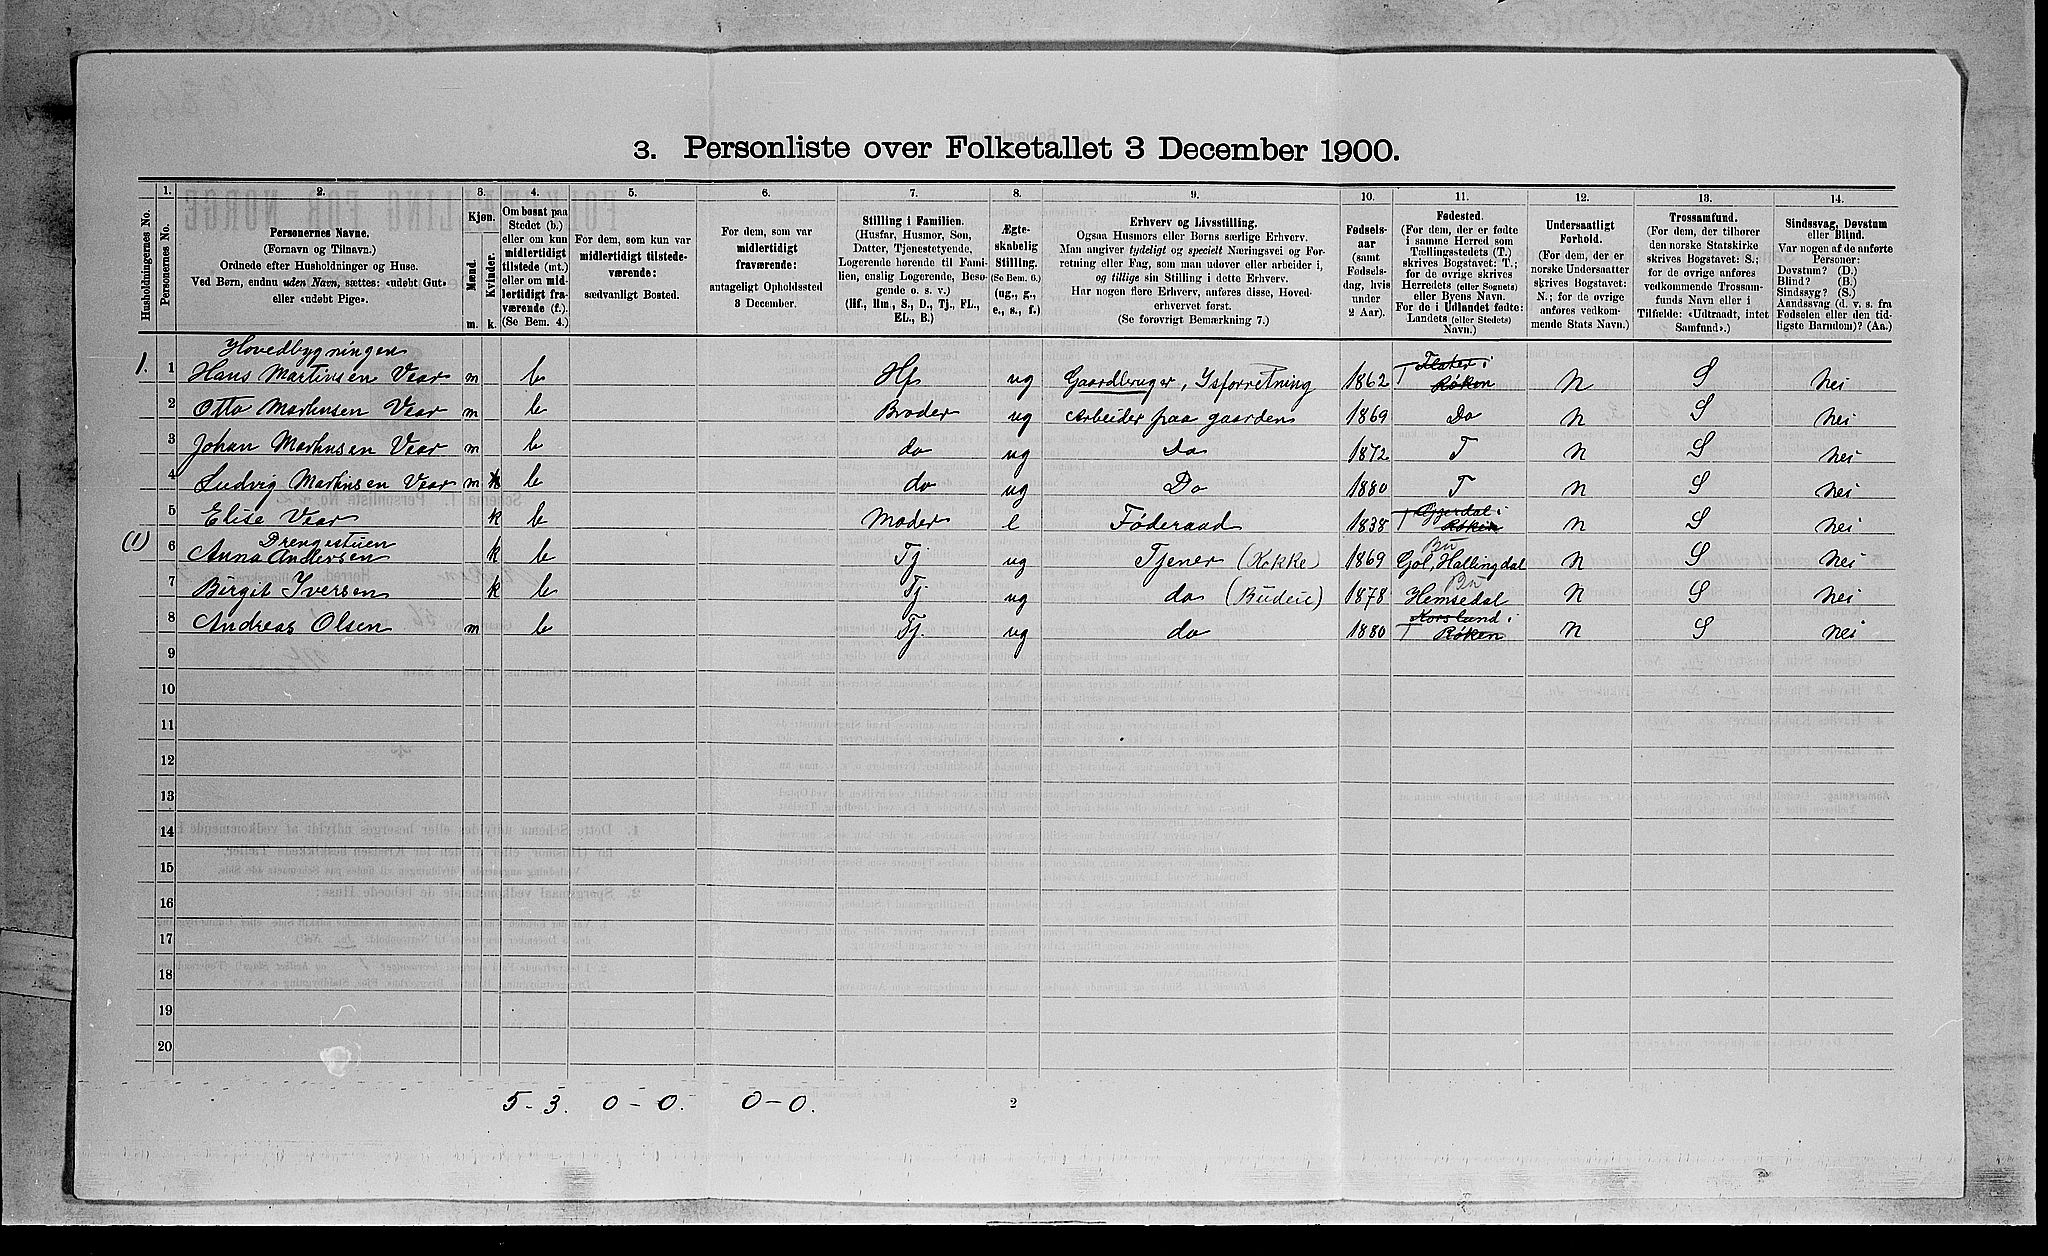 3. Personliste over Folketallet 3 December 1900.
Husholdningernes No.
1.
Personernes No.
2.
Personernes Navne.
(Fornavn og Tilnavn.)
Ordnede efter Husholdninger og Huse.
Ved Børn, endnu uden Navn, sættes: «udøbt Gut»
eller «udøbt Pige».
3.
Kjøn.
Mænd.
Kvinder.
m. k.
4.
Om bosat paa
Stedet (b.)
eller om kun
midlertidigt
tilstede (mt.)
eller om mid-
lertidigt fra-
værende (f.).
(Se Bem. 4.)
5.
For dem, som kun var
midlertidigt tilstede-
værende:
sædvanligt Bosted.
6.
For dem, som var
midlertidigt
fraværende:
antageligt Opholdssted
3 December.
7.
Stilling i Familien.
(Husfar, Husmor, Søn,
Datter, Tjenestetyende,
Logerende hørende til Fami-
lien, enslig Logerende, Besø-
gende o. s. v.)
(Hf., Hm., S., D., Tj., FL.,
EL., B.)
8.
Ægte-
skabelig
Stilling.
(Se Bem. 6.)
(ug., g.,
e., s., f.)
9.
Erhverv og Livsstilling.
Ogsaa Husmors eller Børns særlige Erhverv.
Man angiver tydeligt og specielt Næringsvei og For-
retning eller Fag, som man udøver eller arbeider i,
og tillige sin Stilling i dette Erhverv.
Har nogen flere Erhverv, anføres disse, Hoved-
erhvervet først.
(Se forøvrigt Bemærkning 7.)
10.
Fødsels-
aar
(samt
Fødsels-
dag, hvis
under
2 Aar).
11.
Fødested.
(For dem, der er fødte
i samme Herred som
Tællingsstedets (T.)
skrives Bogstavet: T.;
for de øvrige skrives
Herredets (eller Sognets)
eller Byens Navn.
For de i Udlandet fødte:
Landets (eller Stedets)
Navn.)
12.
Undersaatligt
Forhold.
(For dem, der er
norske Undersaatter
skrives Bogstavet:
N.; for de øvrige
anføres vedkom-
mende Stats Navn.)
13.
Trossamfund.
(For dem, der tilhører
den norske Statskirke
skrives Bogstavet: S.;
for de øvrige anføres
vedkommende Trossam-
funds Navn eller i
Tilfælde: «Udtraadt, intet
Samfund».)
14.
Sindssvag, Døvstum
eller Blind.
Var nogen af de anførte
Personer:
Døvstum? (D.)
Blind? (B.)
Sindssyg? (S.)
Aandssvag (d. v. s. fra
Fødselen eller den tid-
ligste Barndom)? (Aa.)
Hovedbygningen
1. 1 Hans Martinsen Vear m b Hf ug Gaardbruger, Isforretning 1862 T Røken N S Nei
2 Otto Martinsen Vear m b Broder ug Arbeider paa gaarden 1869 Do N S Nei
3 Johan Martinsen Vear m b do ug Do 1872 T N S Nei
4 Ludvig Martinsen Vear m k b do ug Do 1880 T N S Nei
5 Elise Vear k b Moder e Føderaad 1838 T Gjerdal i Røken N S Nei
Drengestuen
(1) 6 Anna Andersen k b Tj ug Tjener (Kokke) 1869 Bu Gol, Hallingdal N S Nei
7 Birgit Iversen k b Tj ug do (Budeie) 1878 Bu Hemsedal N S Nei
8 Andreas Olsen m b Tj. ug do 1880 T Korslund i Røken N S Nei
9
10
11
12
13
14
15
16
17
18
19
20
5-3. 0-0. 0-0.
2